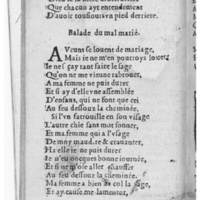 Que chacun ayt entendement
D'auoir tousiours vn pied derriere.
Balade du mal marié.
AVcuns se louent de mariage,
Mais ie ne m'en pourroys louer:
Ie ne sçay tant faire le sage
Qu'on ne me vienne rabrouer,
A ma femme ne puis
Et si ay d'elle vne assemblée
D'enfans, qui ne font que cri
Au feu dessoubz la cheminée.
Si l'vn fatrouille en son visage
L'autre chie sans mot sonner,
Et ma femme qui a l'vsage
De moy maud. re & 
Ha elle ie ne puis durer
Ie n'eu oncques bonne iournée,
Et si ne m'ose aller chauffer
Au feu dessoubz la cheminée.
Ma femme a bien le col la
Et ay cause me lamenter,